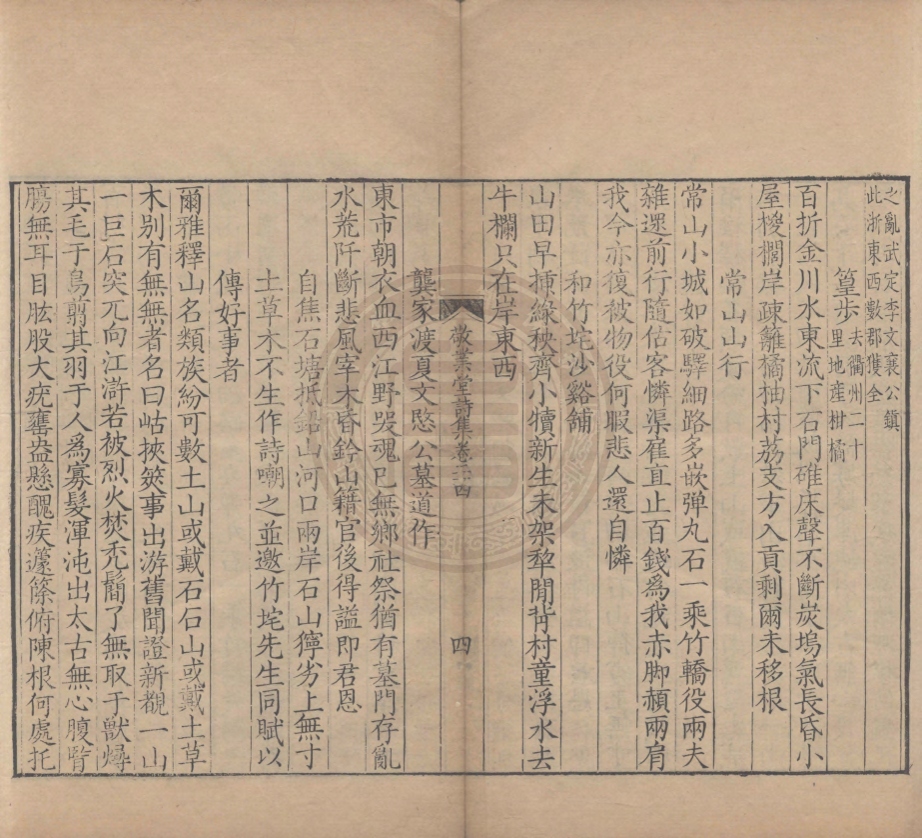 之亂武定李文襄公鎮
此浙東西數郡獲全
篁步去衢州二十
里地産柑橘
百折金川水東流下石門碓床聲不斷炭塢氣長昏小
屋椶欄岸疎籬橘柚村荔支方入貢剩爾未移根
常山山行
常山小城如破驛細路多嵌弹丸石一乘竹轎役兩夫
雜遝前行隨估客憐渠雇直止百錢爲我赤脚頳兩肩
我今亦復被物役何暇悲人還自憐
和竹垞沙谿舖
山田早揷綠秧齊小犢新生未架犂閒背村童浮水去
牛欄只在岸東西
敬業堂詩集卷二十四
四
龔家渡夏文愍公墓道作
東市朝衣血西江野哭魂已無鄉社祭猶有墓門存亂
水荒阡斷悲風宰木昏鈐山籍官後得謚即君恩
自焦石塘抵鉛山河口兩岸石山獰劣上無寸
土草木不生作詩嘲之並邀竹垞先生同賦以
傳好事者
爾雅釋山名類族紛可數土山或戴石石山或戴土草
木别有無無者名曰岵挾筴事出游舊聞證新覩一山
一巨石突兀向江滸若被烈火焚禿鬝了無取于獸燖
其毛于鳥翦其羽于人爲寡髮渾沌出太古無心腹腎
膓無耳目肱股大疣罋盎懸醜疾籧篨俯陳根何處托